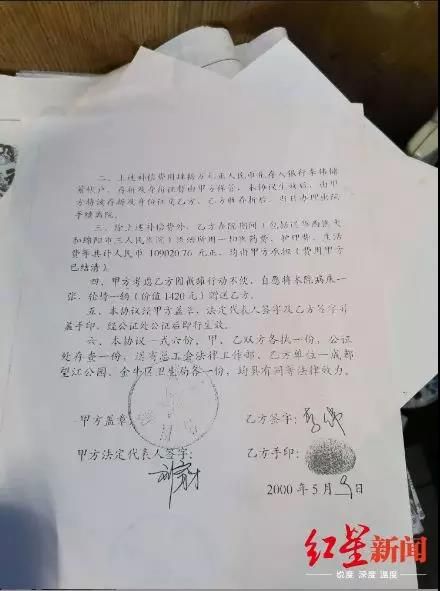 二、上述补偿费用肆拾万元人民币先存入银行李伟储
蓄帐户。存折及身份证暂由甲方保管。本协议生效后，由甲
方将该存折及身份证交乙方。乙方收存折后，当日办理出院
手续离院。
三、除上述补偿费外，乙方在院期间（包括送华西医大
和绵阳市三人民医院）该治疗用一切医药费、护理费、生活
费等共计人民币 109020.76 元正，均由甲方承担（费用甲方
已结清）。
四、甲方考虑乙方因截瘫行动不便，自愿将本院病床一
张、轮椅一辆（价值 1420 元）赠送乙方。
五、本协议经甲方盖章，法定代表人签字及乙方签字并
盖手印，经公证处公证后即行生效。
六、本协议一式六份，甲、乙双方各执一份，公证
处存壹一份，送省总工会法律工作部、乙方单位—成都
望江公园、金牛区卫生局各一份，均具有同等法律效力。
甲方盖章： 乙方签字：
甲方法定代表人签字： 乙方手印：
2000 年 5 月 9 日
红星新闻
锐度 深度 温度